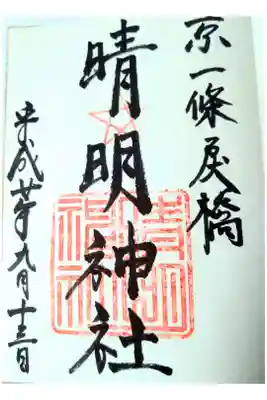 京一條戻橋
晴明神社
平成廿年九月十三日
晴明
神社